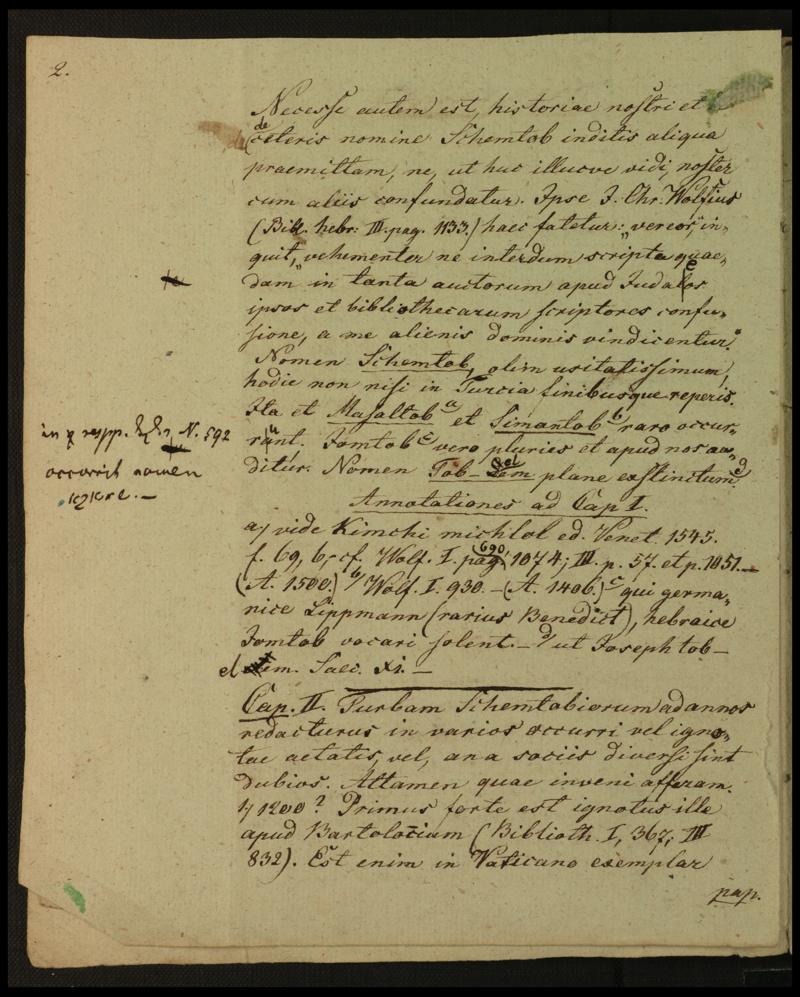 2.
Necesse autem est, historiae nostri et
de
ceteris nomine Schemtob inditis aliqua
praemittam, ne, ut huc illucve vidi, noster
cum aliis confundatur. Ipse J. Chr. Wolfius
(Bibl. hebr. III. pag. 1133.) haec fatetur: „vereor", in-
quit, „vehementer ne interdum scripta quae-
dam in tanta auctorum apud Judaeos
ipsos et bibliothecarum scriptores confu-
sione, a me alienis dominis vindicentur."
Nomen Schemtob, olim usitatissimum,
hodie non nisi in Turcia finibusque reperis.
Ita et Masaltob a et Simantob b raro occur-
runt. Jomtob c vero pluries et apud nos au-
ditur. Nomen Tob-elem plane exstinctum d.
in
resp.
N. 592
occurrit nomen
Annotationes ad Cap I.
a) vide Kimchi michlol ed. Venet. 1545.
f. 69, b, cf. Wolf. I. pag. 690, 1074; III. p. 57. et p. 1051.—
(A. 1500.) b) Wolf. I. 930. — (A. 1406.) c qui germa-
nice Lippmann (rarius Benedict), hebraice
Jomtob vocari solent. — d) ut Joseph tob-
elem. Saec. XI. —
Cap. II. Turbam Schemtobiorum ad annos
redacturus in varios occurri vel igno-
tae aetatis, vel, an a sociis diversi sint
dubios. Attamen quae inveni afferam.
1) 1200? Primus forte est ignotus ille
apud Bartolocium (Biblioth. I, 367, III
832). Est enim in Vaticano exemplar
pap.